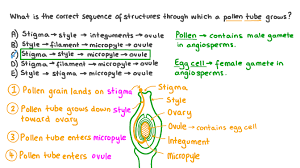 What is the correct sequence of structures through which a pollen tube grows?
A) Stigma → style → integuments → ovule
B) Style → filament → micropyle → ovule
C) Stigma → style → micropyle → ovule
D) Stigma → filament → micropyle → ovule
E) Style → stigma → micropyle → ovule
Pollen → contains male gamete
in angiosperms.
Egg cell → female gamete in
angiosperms.
1 Pollen grain lands on stigma
2 Pollen tube grows down style
toward ovary
3 Pollen tube enters micropyle
4 Pollen tube enters ovule
Stigma
Style
Ovary
Ovule → contains egg cell
Integument
Micropyle